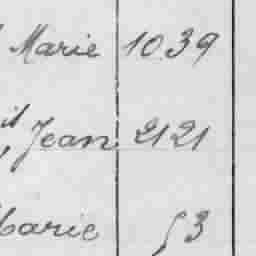 Marie 1039
Jean 2121
Marie 53